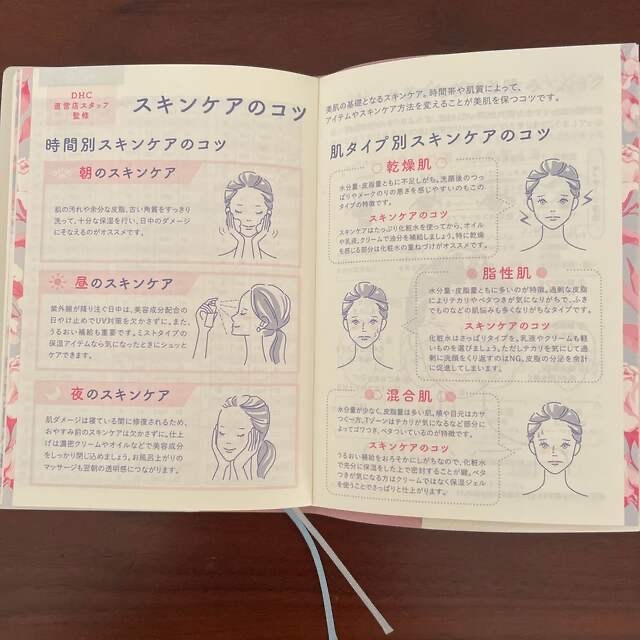 DHC
直営店スタッフ
監修
スキンケアのコツ
時間別スキンケアのコツ
朝のスキンケア
肌の汚れや余分な皮脂、古い角質をすっきり
洗って、十分な保湿を行い、日中のダメージ
にそなえるのがオススメです。
昼のスキンケア
紫外線が降り注ぐ日中は、美容成分配合の
日やけ止めでUV対策を欠かさずに。また、
うるおい補給も重要です。ミストタイプの
保湿アイテムなら気になったときにシュッと
ケアできます。
夜のスキンケア
肌ダメージは寝ている間に修復されるため、
おやすみ前のスキンケアは欠かさずに。仕上
げは濃密クリームやオイルなどで美容成分
をしっかり閉じ込めましょう。お風呂上がりの
マッサージも翌朝の透明感につながります。
美肌の基礎となるスキンケア。時間帯や肌質によって、
アイテムやスキンケア方法を変えることが美肌を保つコツです。
肌タイプ別スキンケアのコツ
乾燥肌
水分量・皮脂量ともに不足しがち。洗顔後のつっ
ぱりやメークのりの悪さを感じやすいのもこの
タイプの特徴です。
スキンケアのコツ
スキンケアはたっぷり化粧水を使ってから、オイル
や乳液、クリームで油分を補給しましょう。特に乾燥
を感じる部分は化粧水の重ねづけがオススメです。
脂性肌
水分量・皮脂量ともに多いのが特徴。過剰な皮脂
によりテカリやベタつきが気になりがちで、ふき
でものなどの肌悩みも多くなりがちなタイプです。
スキンケアのコツ
化粧水はさっぱりタイプを。乳液やクリームも軽
いものを選びましょう。ただしテカリを気にして過
剰に洗顔をくり返すのはNG。皮脂の分泌を余計
に促進してしまいます。
混合肌
水分量が少なく、皮脂量は多い肌。頬や目元はカサ
つく一方、Tゾーンはテカリが気になるなど部分に
よってゴワつき、ベタついているのが特徴です。
スキンケアのコツ
うるおい補給をおろそかにしがちなので、化粧水
で充分に保湿をした上で密封することが鍵。ベタ
つきが気になる方はクリームではなく保湿ジェル
を使うことでさっぱりと仕上がります。